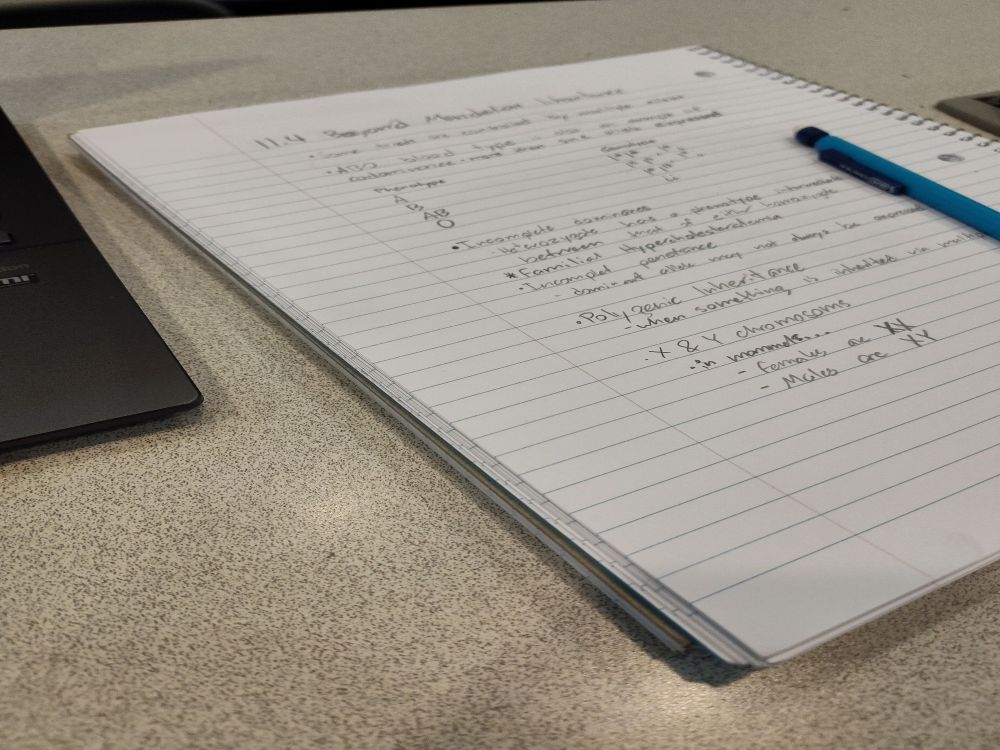 11.4 Beyond Mendelian Inheritance
• Some traits are controlled by multiple alleles
• ABO blood type is also an example of
codominance: more than one allele expressed
Phenotype
Genotype
A
B
AB
O
• Incomplete dominance
- Heterozygote has a phenotype intermediate
between that of either homozygote
* Familial Hypercholesterolemia
• Incomplet penetrance
- dominant allele may not always be expressed
• Polygenic Inheritance
- when something is inherited via
• X & Y chromosoms
• in mammels...
- Females are XX
- Males are XY